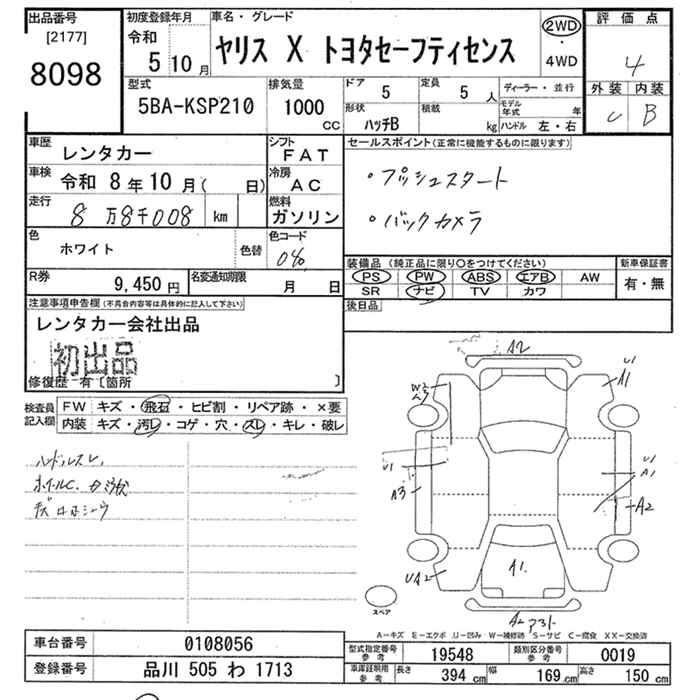 出品番号
[2177]
8098
初度登録年月
令和
5 10 月
車名・グレード
ヤリス X トヨタセーフティセンス
2WD
・
4WD
評価点
4
外装 内装
C B
型式
5BA-KSP210
排気量
1000
CC
ドア
5
定員
5 人
形状
ハッチB
積載
kg
ディーラー・並行
モデル年式 年
ハンドル 左・右
車歴
レンタカー
車検 令和 8 年 10 月 ( 日)
走行
8 万8千008 km
シフト
F A T
冷房
A C
燃料
ガソリン
色
ホワイト
色替
色コード
040
R券
9,450 円
名変通知期限
月 日
セールスポイント(正常に機能するものに限ります)
・プッシュスタート
・バックカメラ
装備品 (純正品に限り○をつけてください)
PS PW ABS エアB AW
SR ナビ TV カワ
新車保証書
有・無
後日品
注意事項申告欄 (不具合内容等は具体的に記入して下さい)
レンタカー会社出品
初出品
修復歴 有〔箇所 〕
検査員
記入欄
FW キズ・飛石・ヒビ割・リペア跡・×要
内装 キズ・汚レ・コゲ・穴・スレ・キレ・破レ
ハンドルスレ
ホイルC
A2
U1
A1
W2
U1
A3
U1
A1
A2
UA2
A1.
A2
スペア
A−キズ E−エクボ U−凹み W−補修跡 S−サビ C−腐食 XX−交換済
車台番号 0108056
登録番号 品川 505 わ 1713
型式指定番号
参考
19548
類別区分番号
参考
0019
車庫証明用
参考
長さ 394 cm 幅 169 cm 高さ 150 cm